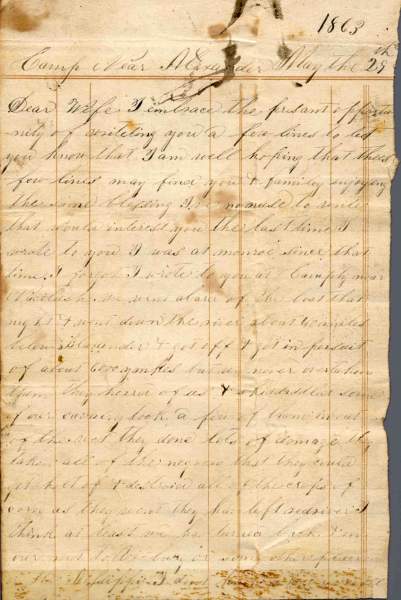 1863
Camp Near Alexander May the 29th
Dear Wife I embrace the presant oppertu
nity of writeing you a few lines to let
you know that I am well hoping that these
few lines may find you & familey enjoying
the same blessing I no nuse to write
that would interest you the last time I
wrote to you I was at monroe since that
time I wrote to you at Camp near
we went abare of the bost that
night & went down the river about 60 miles
below Alexander & got off & got in persuit
of about 6000 yankes but we never overtaken
them They herd of us & skidadled some
of our cavalry took a few of them in out
of the wet they done lots of damage they
taken all of the negroes that they could
get holt of & destroid all of the crops of
corn as they went they have left redriver I
think at least we have turned back & en
our rout to or some other place on
the Missippi I dont